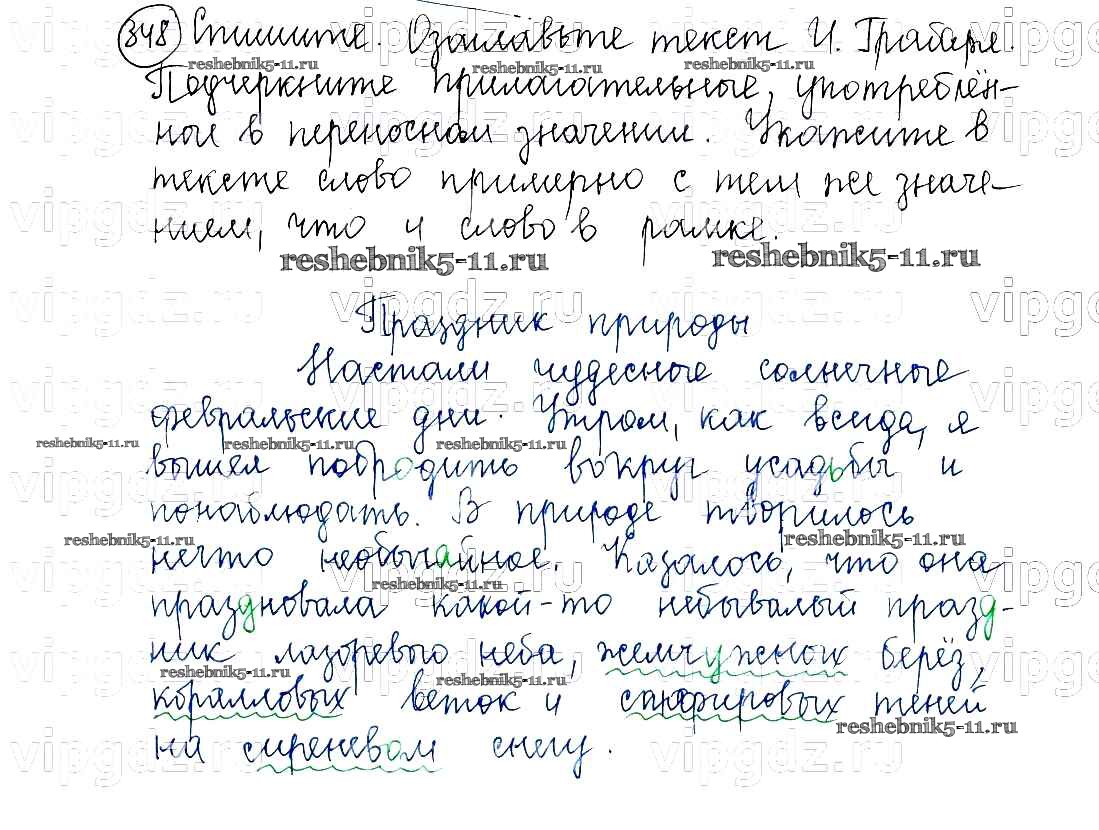 348 Спишите. Озаглавьте текст И. Грабаря.
Подчеркните прилагательные, употреблён-
ные в переносном значении. Укажите в
тексте слово примерно с тем же значе-
нием, что и слово в рамке.
Праздник природы
Настали чудесные солнечные
февральские дни. Утром, как всегда, я
вышел побродить вокруг усадьбы и
понаблюдать. В природе творилось
нечто необычайное. Казалось, что она
праздновала какой-то небывалый празд-
ник лазоревого неба, жемчужных берёз,
коралловых веток и сапфировых теней
на сиреневом снегу.
reshebnik5-11.ru
vipgdz.ru